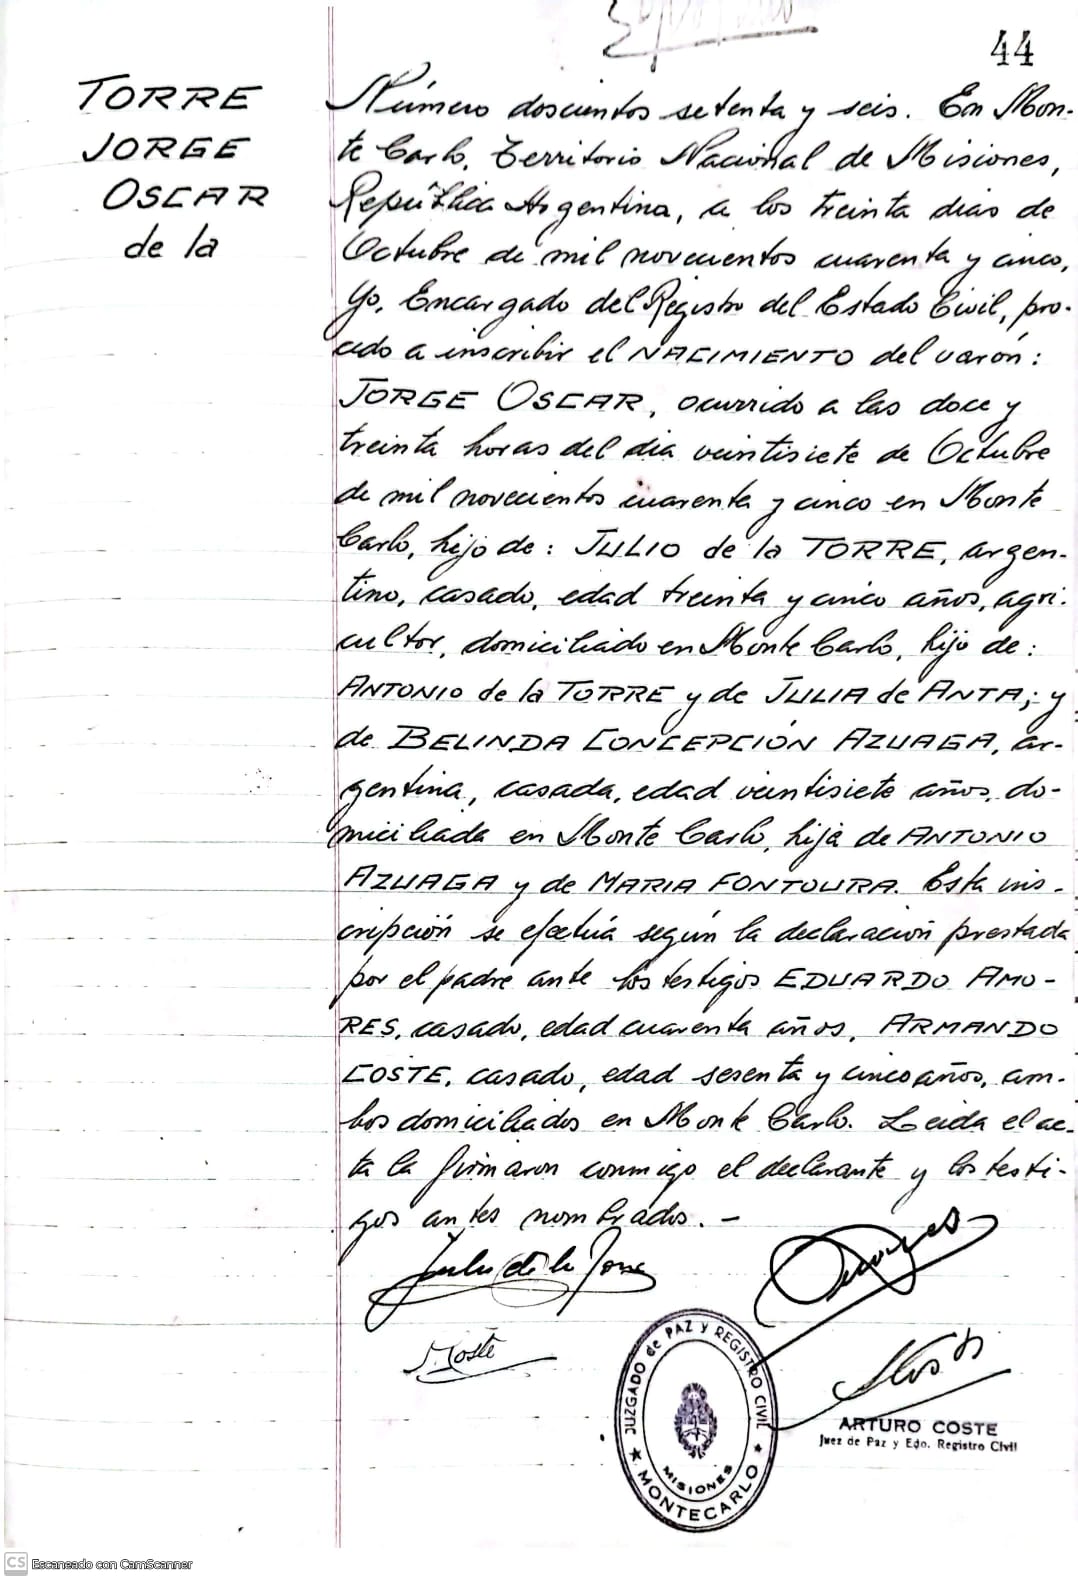 44
TORRE
JORGE
OSCAR
de la
Número doscientos setenta y seis. En Mon-
te Carlo, Territorio Nacional de Misiones,
República Argentina, a los treinta dias de
Octubre de mil novecientos cuarenta y cinco,
Yo, Encargado del Registro del Estado Civil, pro-
cedo a inscribir el NACIMIENTO del varón:
JORGE OSCAR, ocurrido a las doce y
treinta horas del dia veintisiete de Octubre
de mil novecientos cuarenta y cinco en Monte
Carlo, hijo de: JULIO de la TORRE, argen-
tino, casado, edad treinta y cinco años, agri-
cultor, domiciliado en Monte Carlo, hijo de:
ANTONIO de la TORRE y de JULIA de ANTA; y
de BELINDA CONCEPCIÓN AZUAGA, ar-
gentina, casada, edad veintisiete años, do-
miciliada en Monte Carlo, hija de ANTONIO
AZUAGA y de MARIA FONTOURA. Esta ins-
cripción se efectúa según la declaración prestada
por el padre ante los testigos EDUARDO AMO-
RES, casado, edad cuarenta años, ARMANDO
COSTE, casado, edad sesenta y cinco años, am-
bos domiciliados en Monte Carlo. Leida el ac-
ta la firmaron conmigo el declarante y los testi-
gos antes nombrados. -
Julio de la Torre
Coste
JUZGADO de PAZ y REGISTRO CIVIL
MISIONES
MONTECARLO
ARTURO COSTE
Juez de Paz y Edo. Registro Civil
CS Escaneado con CamScanner